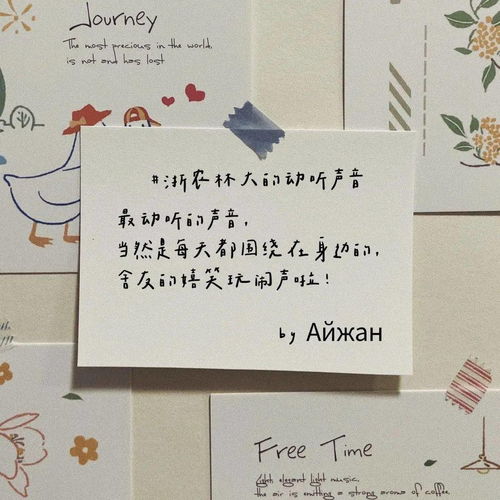 Journey
The most precious in the world,
is not and has lost
#浙农林大的动听声音
最动听的声音，
当然是每天都围绕在身边的，
舍友的嬉笑玩闹声啦！
by Айжан
Free Time
Light, elegant light music,
the air is emitting a strong aroma of coffee.